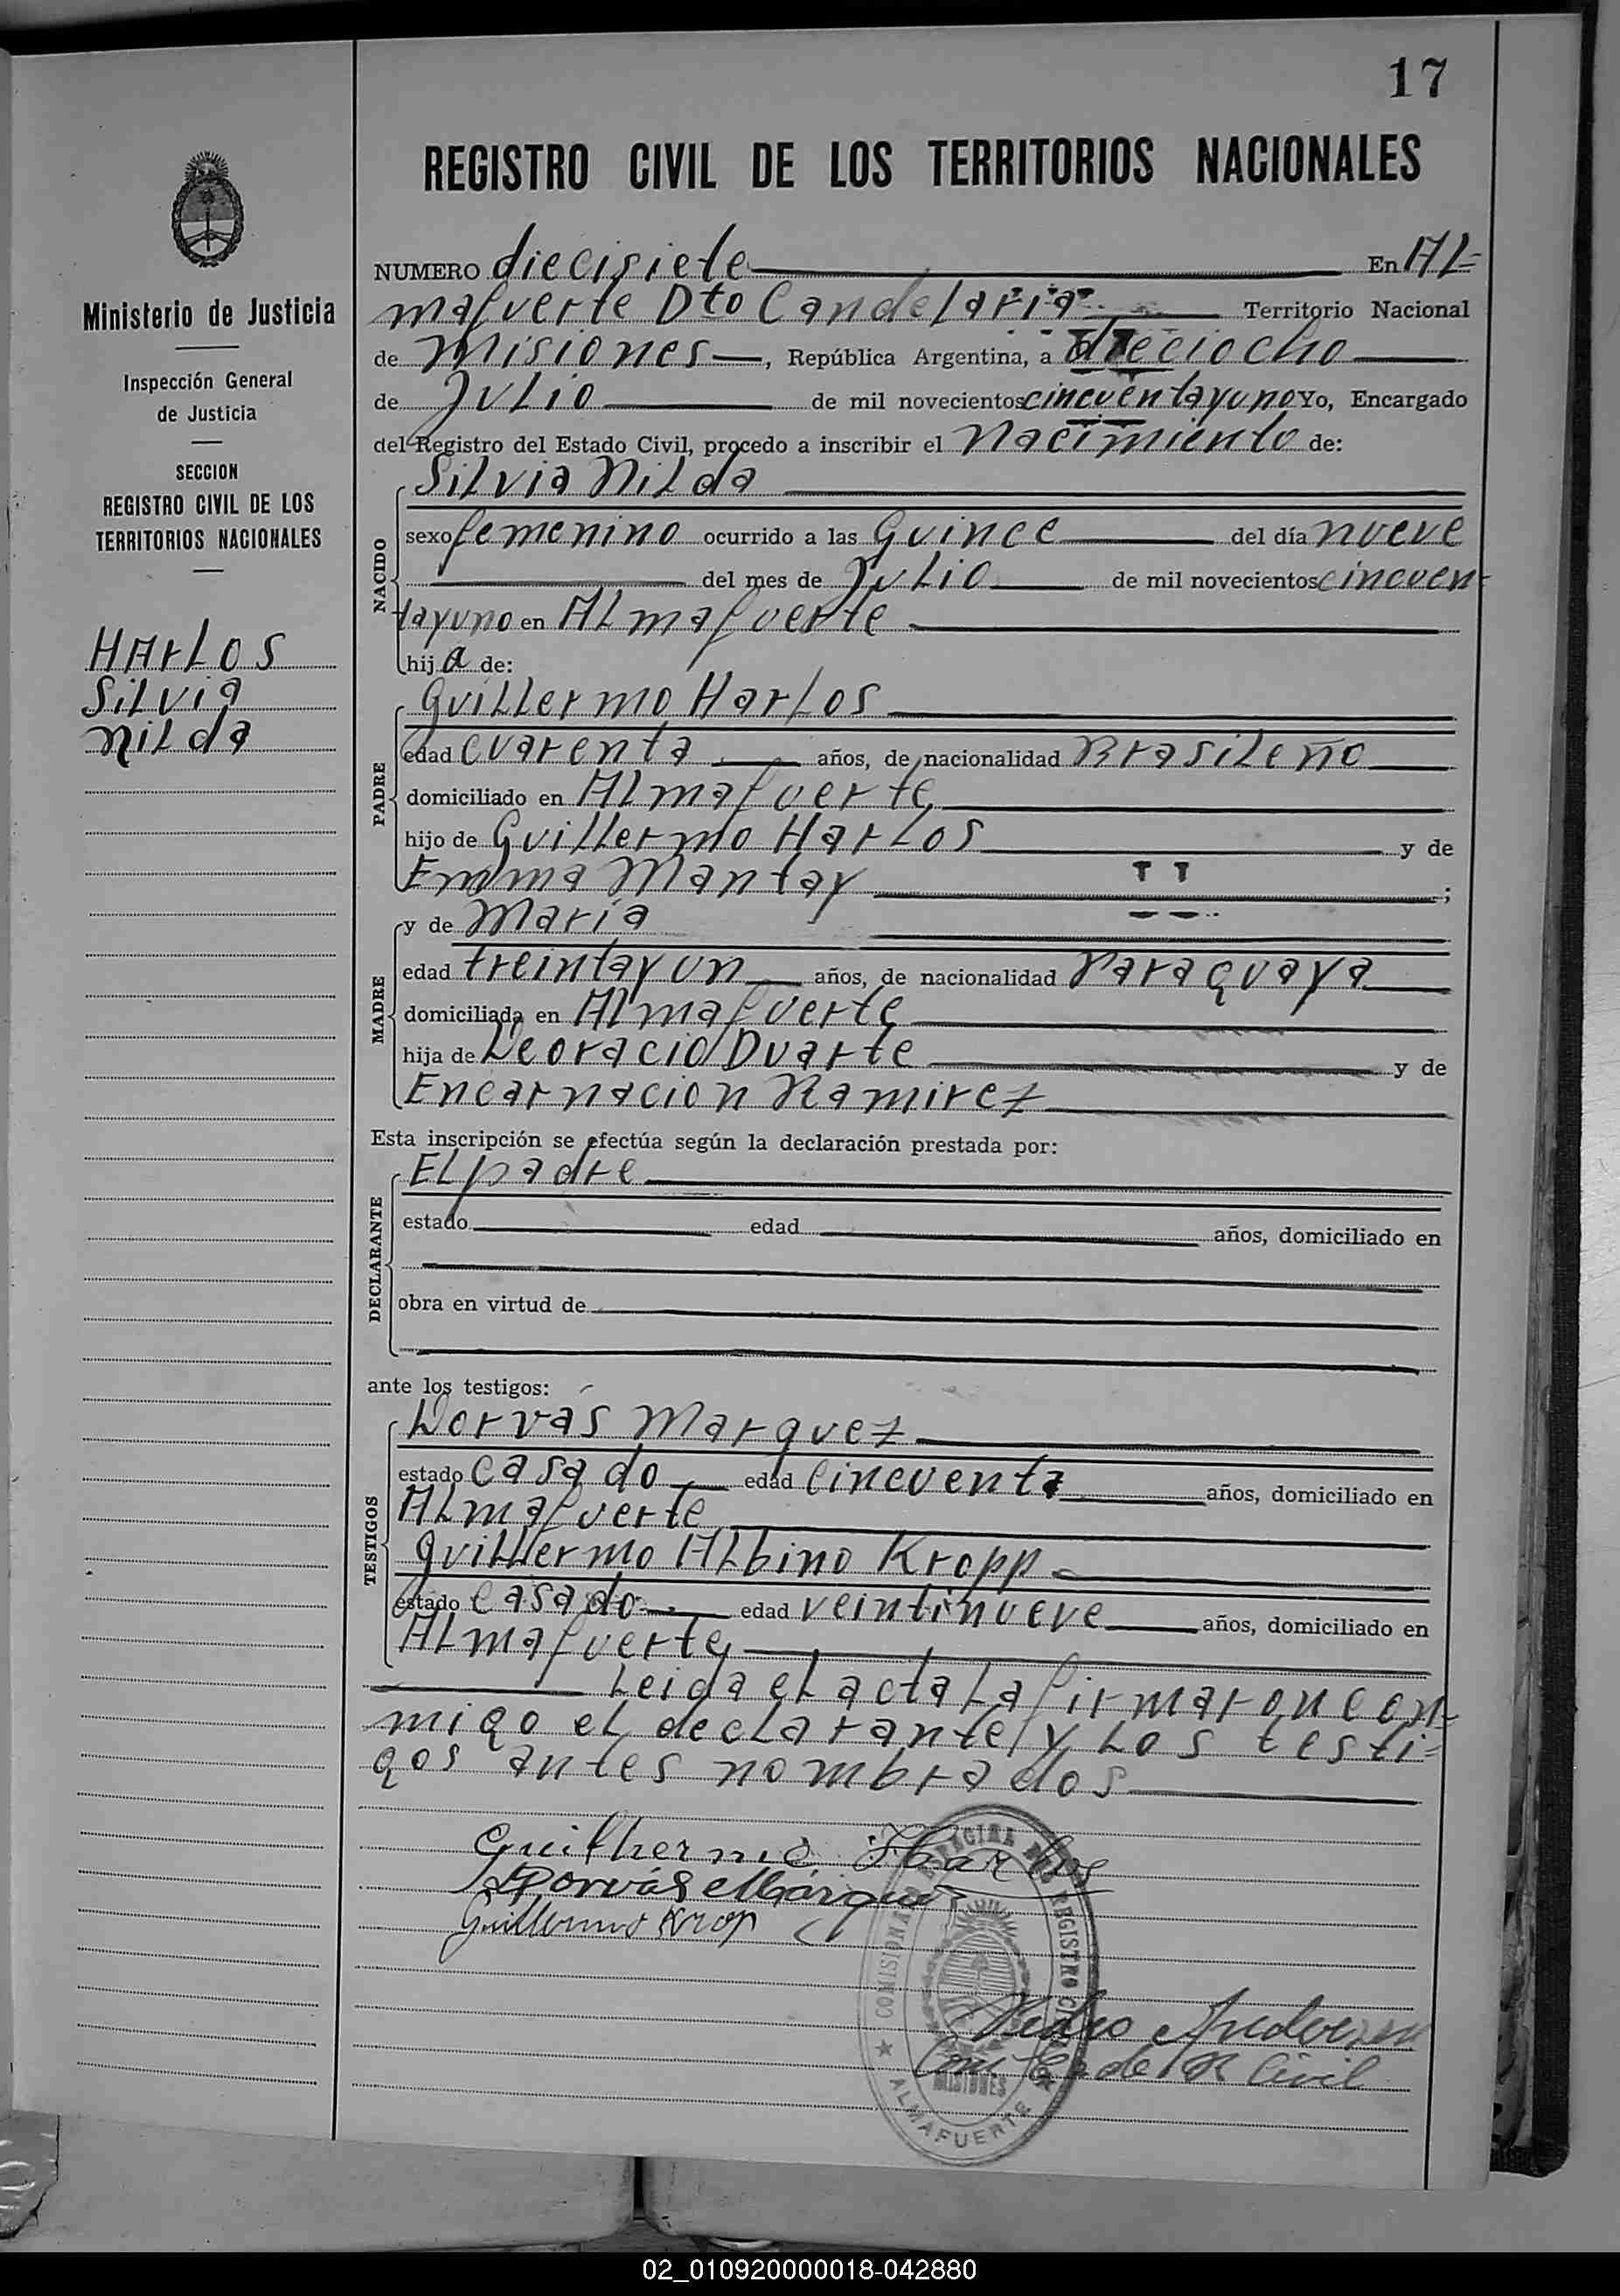 17
REGISTRO CIVIL DE LOS TERRITORIOS NACIONALES
Ministerio de Justicia
Inspección General
de Justicia
SECCION
REGISTRO CIVIL DE LOS
TERRITORIOS NACIONALES
HArLos
Silvia
Nilda
NUMERO diecisiete En Al-
mafuerte Dto Candelaria Territorio Nacional
de Misiones, República Argentina, a dieciocho
de Julio de mil novecientos cincuentayuno Yo, Encargado
del Registro del Estado Civil, procedo a inscribir el Nacimiento de:
NACIDO
Silvia Nilda
sexo femenino ocurrido a las Quince del día nueve
del mes de Julio de mil novecientos cincuen-
tayuno en Almafuerte
hija de:
PADRE
Guillermo Harlos
edad cuarenta años, de nacionalidad Brasileño
domiciliado en Almafuerte
hijo de Guillermo Harlos y de
Emma Mantay ;
MADRE
y de María
edad treintayun años, de nacionalidad Paraguaya
domiciliada en Almafuerte
hija de Deoracio Duarte y de
Encarnacion Ramirez
Esta inscripción se efectúa según la declaración prestada por:
DECLARANTE
El padre
estado edad años, domiciliado en
obra en virtud de
ante los testigos:
TESTIGOS
Dorvas Marquez
estado casado edad cincuenta años, domiciliado en
Almafuerte
Guillermo Albino Kropp
estado casado edad veintinueve años, domiciliado en
Almafuerte
Leida el acta la firmaron con-
migo el declarante y los testi-
gos antes nombrados
Guilherme Harlos
Dorvás Márquez
Guillermo Krop
Pedro
de R Civil
MISIONES
ALMAFUERTE
02_010920000018-042880